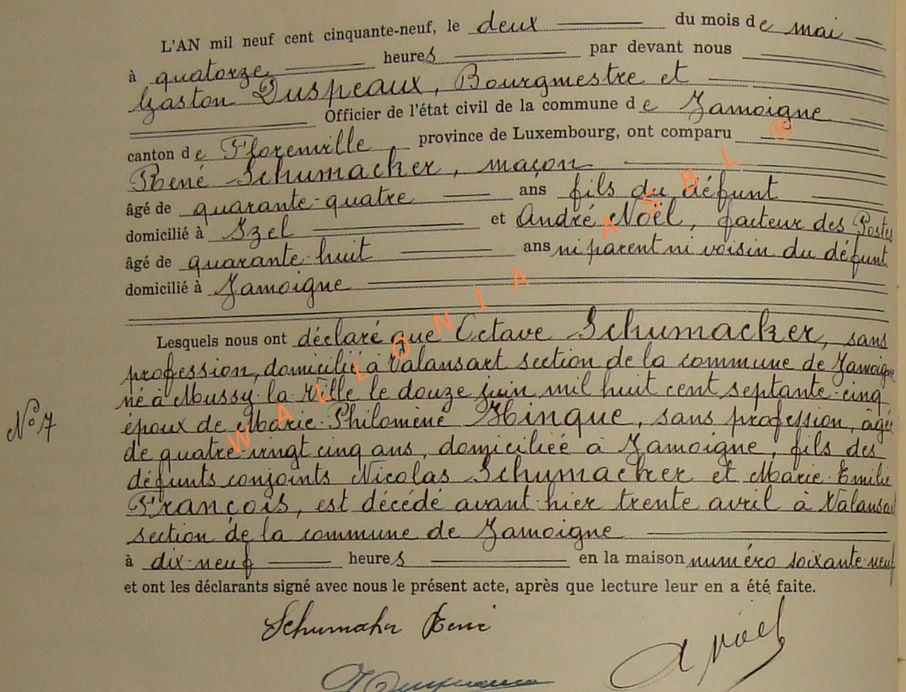 L'AN mil neuf cent cinquante-neuf, le deux du mois de mai
à quatorze heures par devant nous
Gaston Duspeaux, Bourgmestre et
Officier de l'état civil de la commune de Jamoigne
canton de Florenville, province de Luxembourg, ont comparu
René Schumacker, maçon
âgé de quarante-quatre ans fils du défunt
domicilié à Izel et André Noël, facteur des Postes
âgé de quarante-huit ans ni parent ni voisin du défunt
domicilié à Jamoigne
Lesquels nous ont déclaré que Octave Schumacker, sans
profession, domicilié à Valansart section de la commune de Jamoigne
né à Mussy-la-Ville le douze juin mil huit cent septante-cinq
époux de Marie-Philomène Hinque, sans profession, âgée
N° 7
de quatre-vingt cinq ans, domiciliée à Jamoigne, fils des
défunts conjoints Nicolas Schumacker et Marie-Emilie
François, est décédé avant-hier trente avril à Valansart
section de la commune de Jamoigne
à dix-neuf heures en la maison numéro soixante-neuf
et ont les déclarants signé avec nous le présent acte, après que lecture leur en a été faite.
Schumaker René
A Noël
WALLONIA ASBL ®